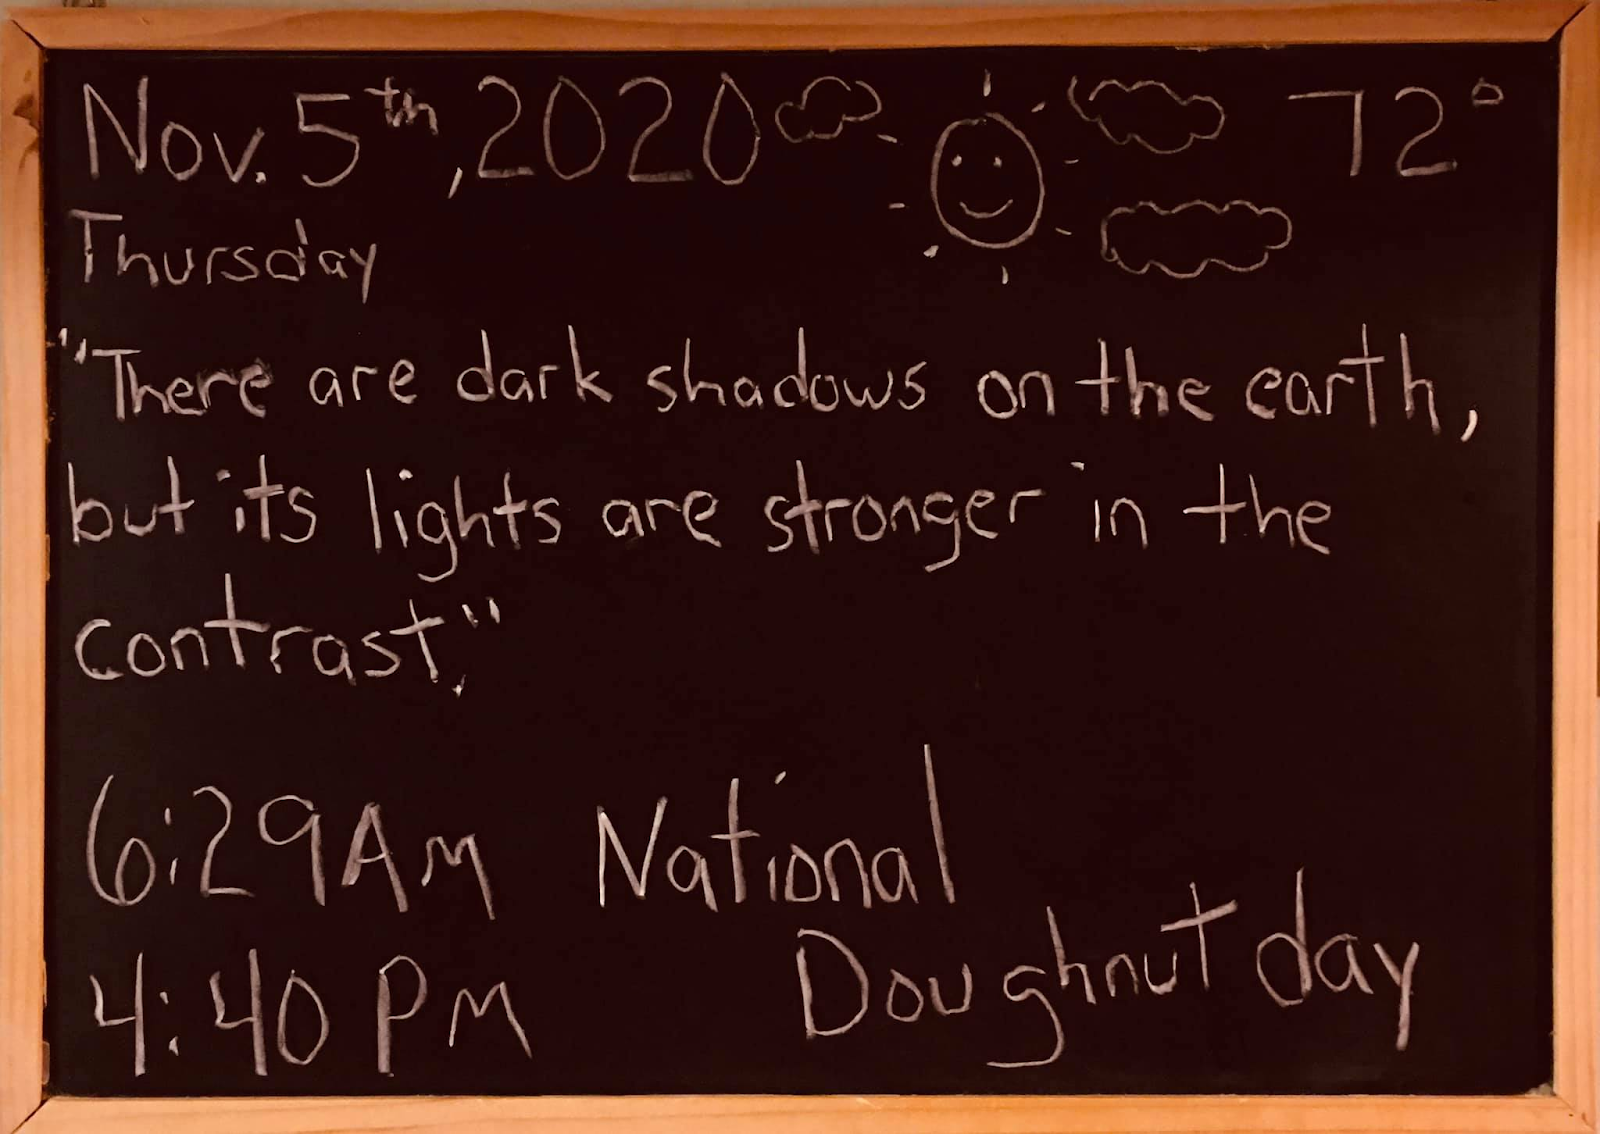 Nov. 5th, 2020 72°
Thursday
"There are dark shadows on the earth,
but its lights are stronger in the
contrast."
6:29AM National
4:40 PM Doughnut day